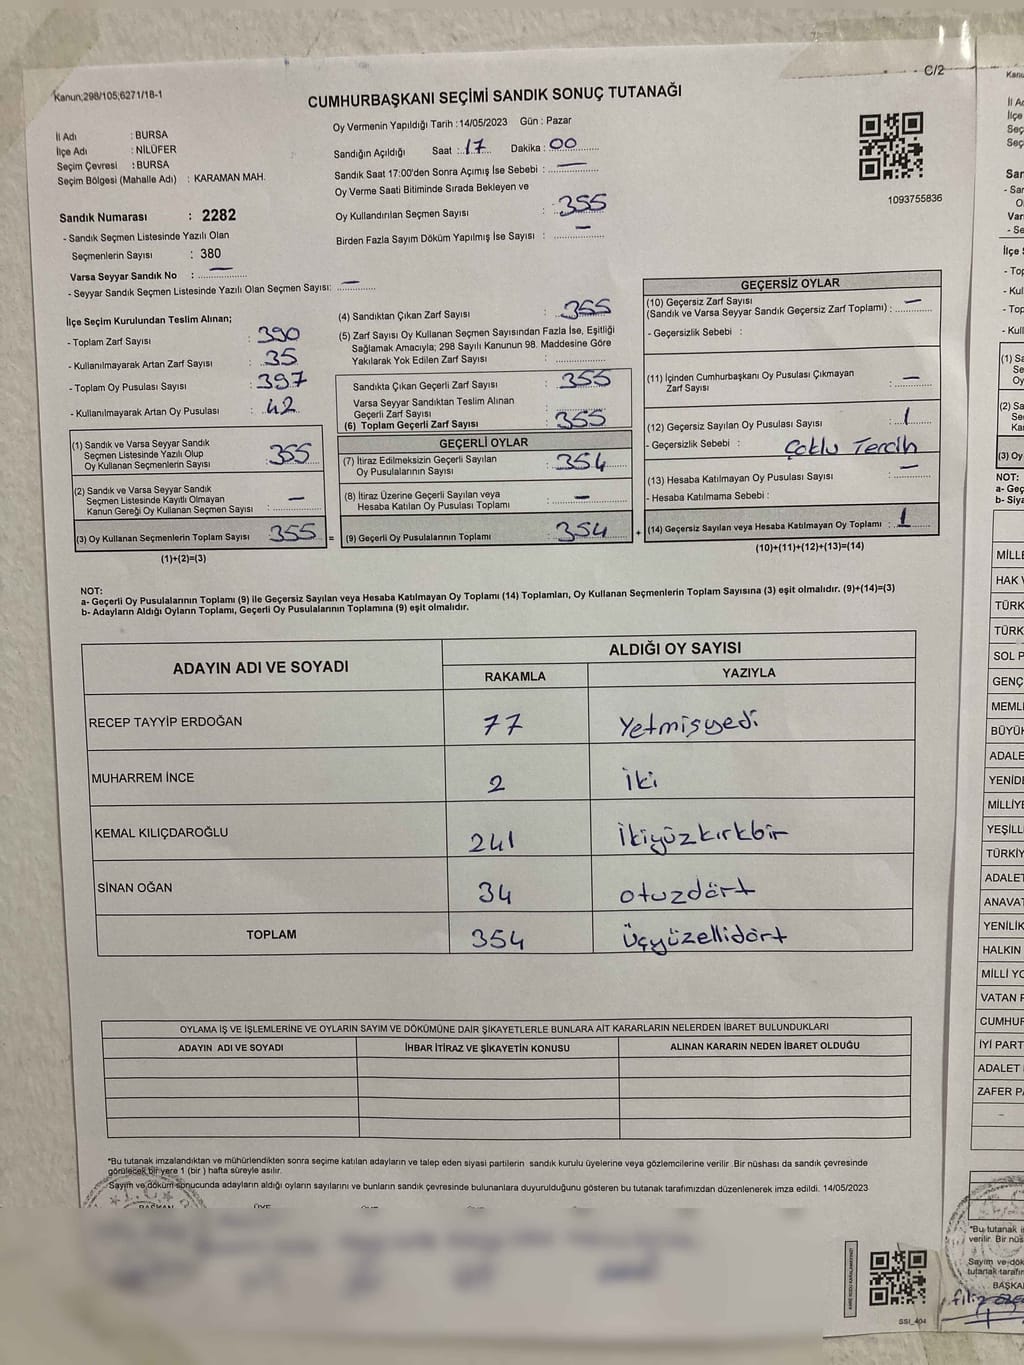 Kanun;298/105;6271/18-1
C/2
CUMHURBAŞKANI SEÇİMİ SANDIK SONUÇ TUTANAĞI
İl Adı : BURSA
İlçe Adı : NİLÜFER
Seçim Çevresi : BURSA
Seçim Bölgesi (Mahalle Adı) : KARAMAN MAH.
Sandık Numarası : 2282
- Sandık Seçmen Listesinde Yazılı Olan
Seçmenlerin Sayısı : 380
Varsa Seyyar Sandık No : —
- Seyyar Sandık Seçmen Listesinde Yazılı Olan Seçmen Sayısı: —
Oy Vermenin Yapıldığı Tarih : 14/05/2023 Gün : Pazar
Sandığın Açıldığı Saat : 17 Dakika : 00
Sandık Saat 17:00'den Sonra Açımış İse Sebebi : —
Oy Verme Saati Bitiminde Sırada Bekleyen ve
Oy Kullandırılan Seçmen Sayısı : 355
Birden Fazla Sayım Döküm Yapılmış İse Sayısı : —
1093755836
İlçe Seçim Kurulundan Teslim Alınan;
- Toplam Zarf Sayısı : 390
- Kullanılmayarak Artan Zarf Sayısı : 35
- Toplam Oy Pusulası Sayısı : 397
- Kullanılmayarak Artan Oy Pusulası : 42
(1) Sandık ve Varsa Seyyar Sandık
Seçmen Listesinde Yazılı Olup
Oy Kullanan Seçmenlerin Sayısı : 355
(2) Sandık ve Varsa Seyyar Sandık
Seçmen Listesinde Kayıtlı Olmayan
Kanun Gereği Oy Kullanan Seçmen Sayısı : —
(3) Oy Kullanan Seçmenlerin Toplam Sayısı : 355
(1)+(2)=(3)
(4) Sandıktan Çıkan Zarf Sayısı : 355
(5) Zarf Sayısı Oy Kullanan Seçmen Sayısından Fazla İse, Eşitliği
Sağlamak Amacıyla; 298 Sayılı Kanunun 98. Maddesine Göre
Yakılarak Yok Edilen Zarf Sayısı :
Sandıkta Çıkan Geçerli Zarf Sayısı : 355
Varsa Seyyar Sandıktan Teslim Alınan
Geçerli Zarf Sayısı :
(6) Toplam Geçerli Zarf Sayısı : 355
GEÇERLİ OYLAR
(7) İtiraz Edilmeksizin Geçerli Sayılan
Oy Pusulalarının Sayısı : 354
(8) İtiraz Üzerine Geçerli Sayılan veya
Hesaba Katılan Oy Pusulası Toplamı : —
= (9) Geçerli Oy Pusulalarının Toplamı : 354 +
GEÇERSİZ OYLAR
(10) Geçersiz Zarf Sayısı
(Sandık ve Varsa Seyyar Sandık Geçersiz Zarf Toplamı) : —
- Geçersizlik Sebebi :
(11) İçinden Cumhurbaşkanı Oy Pusulası Çıkmayan
Zarf Sayısı : —
(12) Geçersiz Sayılan Oy Pusulası Sayısı : 1
- Geçersizlik Sebebi : Çoklu Tercih
(13) Hesaba Katılmayan Oy Pusulası Sayısı : —
- Hesaba Katılmama Sebebi :
(14) Geçersiz Sayılan veya Hesaba Katılmayan Oy Toplamı : 1
(10)+(11)+(12)+(13)=(14)
NOT:
a- Geçerli Oy Pusulalarının Toplamı (9) ile Geçersiz Sayılan veya Hesaba Katılmayan Oy Toplamı (14) Toplamları, Oy Kullanan Seçmenlerin Toplam Sayısına (3) eşit olmalıdır. (9)+(14)=(3)
b- Adayların Aldığı Oyların Toplamı, Geçerli Oy Pusulalarının Toplamına (9) eşit olmalıdır.
ADAYIN ADI VE SOYADI ALDIĞI OY SAYISI
RAKAMLA YAZIYLA
RECEP TAYYİP ERDOĞAN 77 Yetmişyedi
MUHARREM İNCE 2 İki
KEMAL KILIÇDAROĞLU 241 İkiyüzkırkbir
SİNAN OĞAN 34 otuzdört
TOPLAM 354 Üçyüzellidört
OYLAMA İŞ VE İŞLEMLERİNE VE OYLARIN SAYIM VE DÖKÜMÜNE DAİR ŞİKAYETLERLE BUNLARA AİT KARARLARIN NELERDEN İBARET BULUNDUKLARI
ADAYIN ADI VE SOYADI İHBAR İTİRAZ VE ŞİKAYETİN KONUSU ALINAN KARARIN NEDEN İBARET OLDUĞU
*Bu tutanak imzalandıktan ve mühürlendikten sonra seçime katılan adayların ve talep eden siyasi partilerin sandık kurulu üyelerine veya gözlemcilerine verilir .Bir nüshası da sandık çevresinde
görülecek bir yere 1 (bir ) hafta süreyle asılır.
Sayım ve döküm sonucunda adayların aldığı oyların sayılarını ve bunların sandık çevresinde bulunanlara duyurulduğunu gösteren bu tutanak tarafımızdan düzenlenerek imza edildi. 14/05/2023
T.C.
BAŞKAN ÜYE
SSİ_404
Kanu
İl A
İlçe
Seç
Seç
San
NOT:
a- Geç
b- Siya
MİLLE
HAK V
TÜRK
TÜRK
SOL P
GENÇ
MEML
BÜYÜK
ADALE
YENİD
MİLLİYE
YEŞİLL
TÜRKİY
ADALET
ANAVAT
YENİLİK
HALKIN
MİLLİ YO
VATAN P
CUMHUR
İYİ PART
ADALET
ZAFER PA
*Bu tutanak i
verilir. Bir nüs
Sayım ve dök
tutanak tarafın
BAŞKA